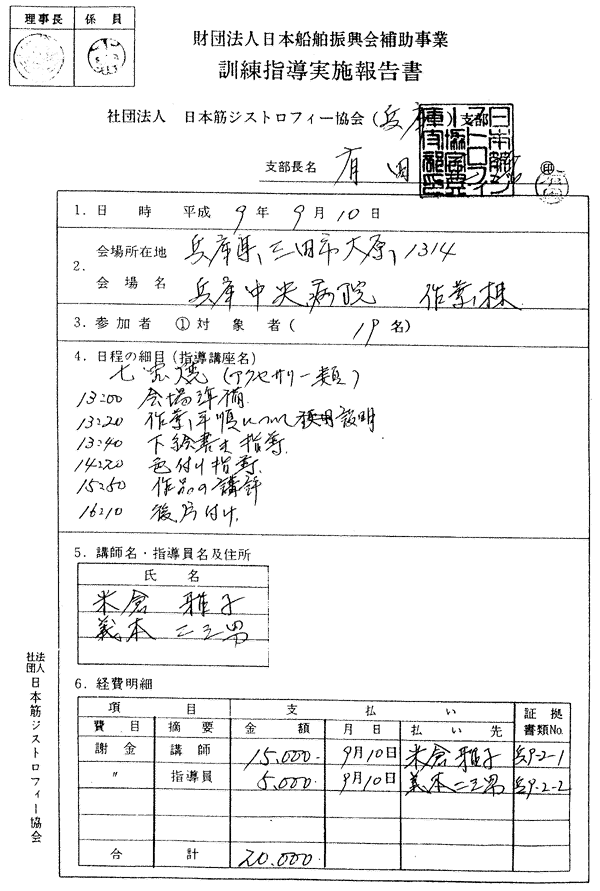 理事長 係員
財団法人日本船舶振興会補助事業
訓練指導実施報告書
社団法人 日本筋ジストロフィー協会(兵庫)支部
支部長名 有田
印
1. 日 時 平成 9 年 9 月 10 日
2. 会場所在地 兵庫県三田市大原1314
会場名 兵庫中央病院 作業棟
3. 参加者 ①対象者( 19 名)
4. 日程の細目(指導講座名)
七宝焼(アクセサリー類)
13:00 会場準備
13:20 作業手順について 説明
13:40 下絵書き指導
14:20 色付け指導
15:50 作品の講評
16:10 後片付け
5. 講師名・指導員名及住所
氏名
米倉 雅子
義本 二三男
6. 経費明細
項目 支払い 証拠書類No.
費目 摘要 金額 月日 払い先
謝金 講師 15,000. 9月10日 米倉雅子 兵9-2-1
〃 指導員 5,000. 9月10日 義本二三男 兵9-2-2
合計 20,000.
社団法人 日本筋ジストロフィー協会